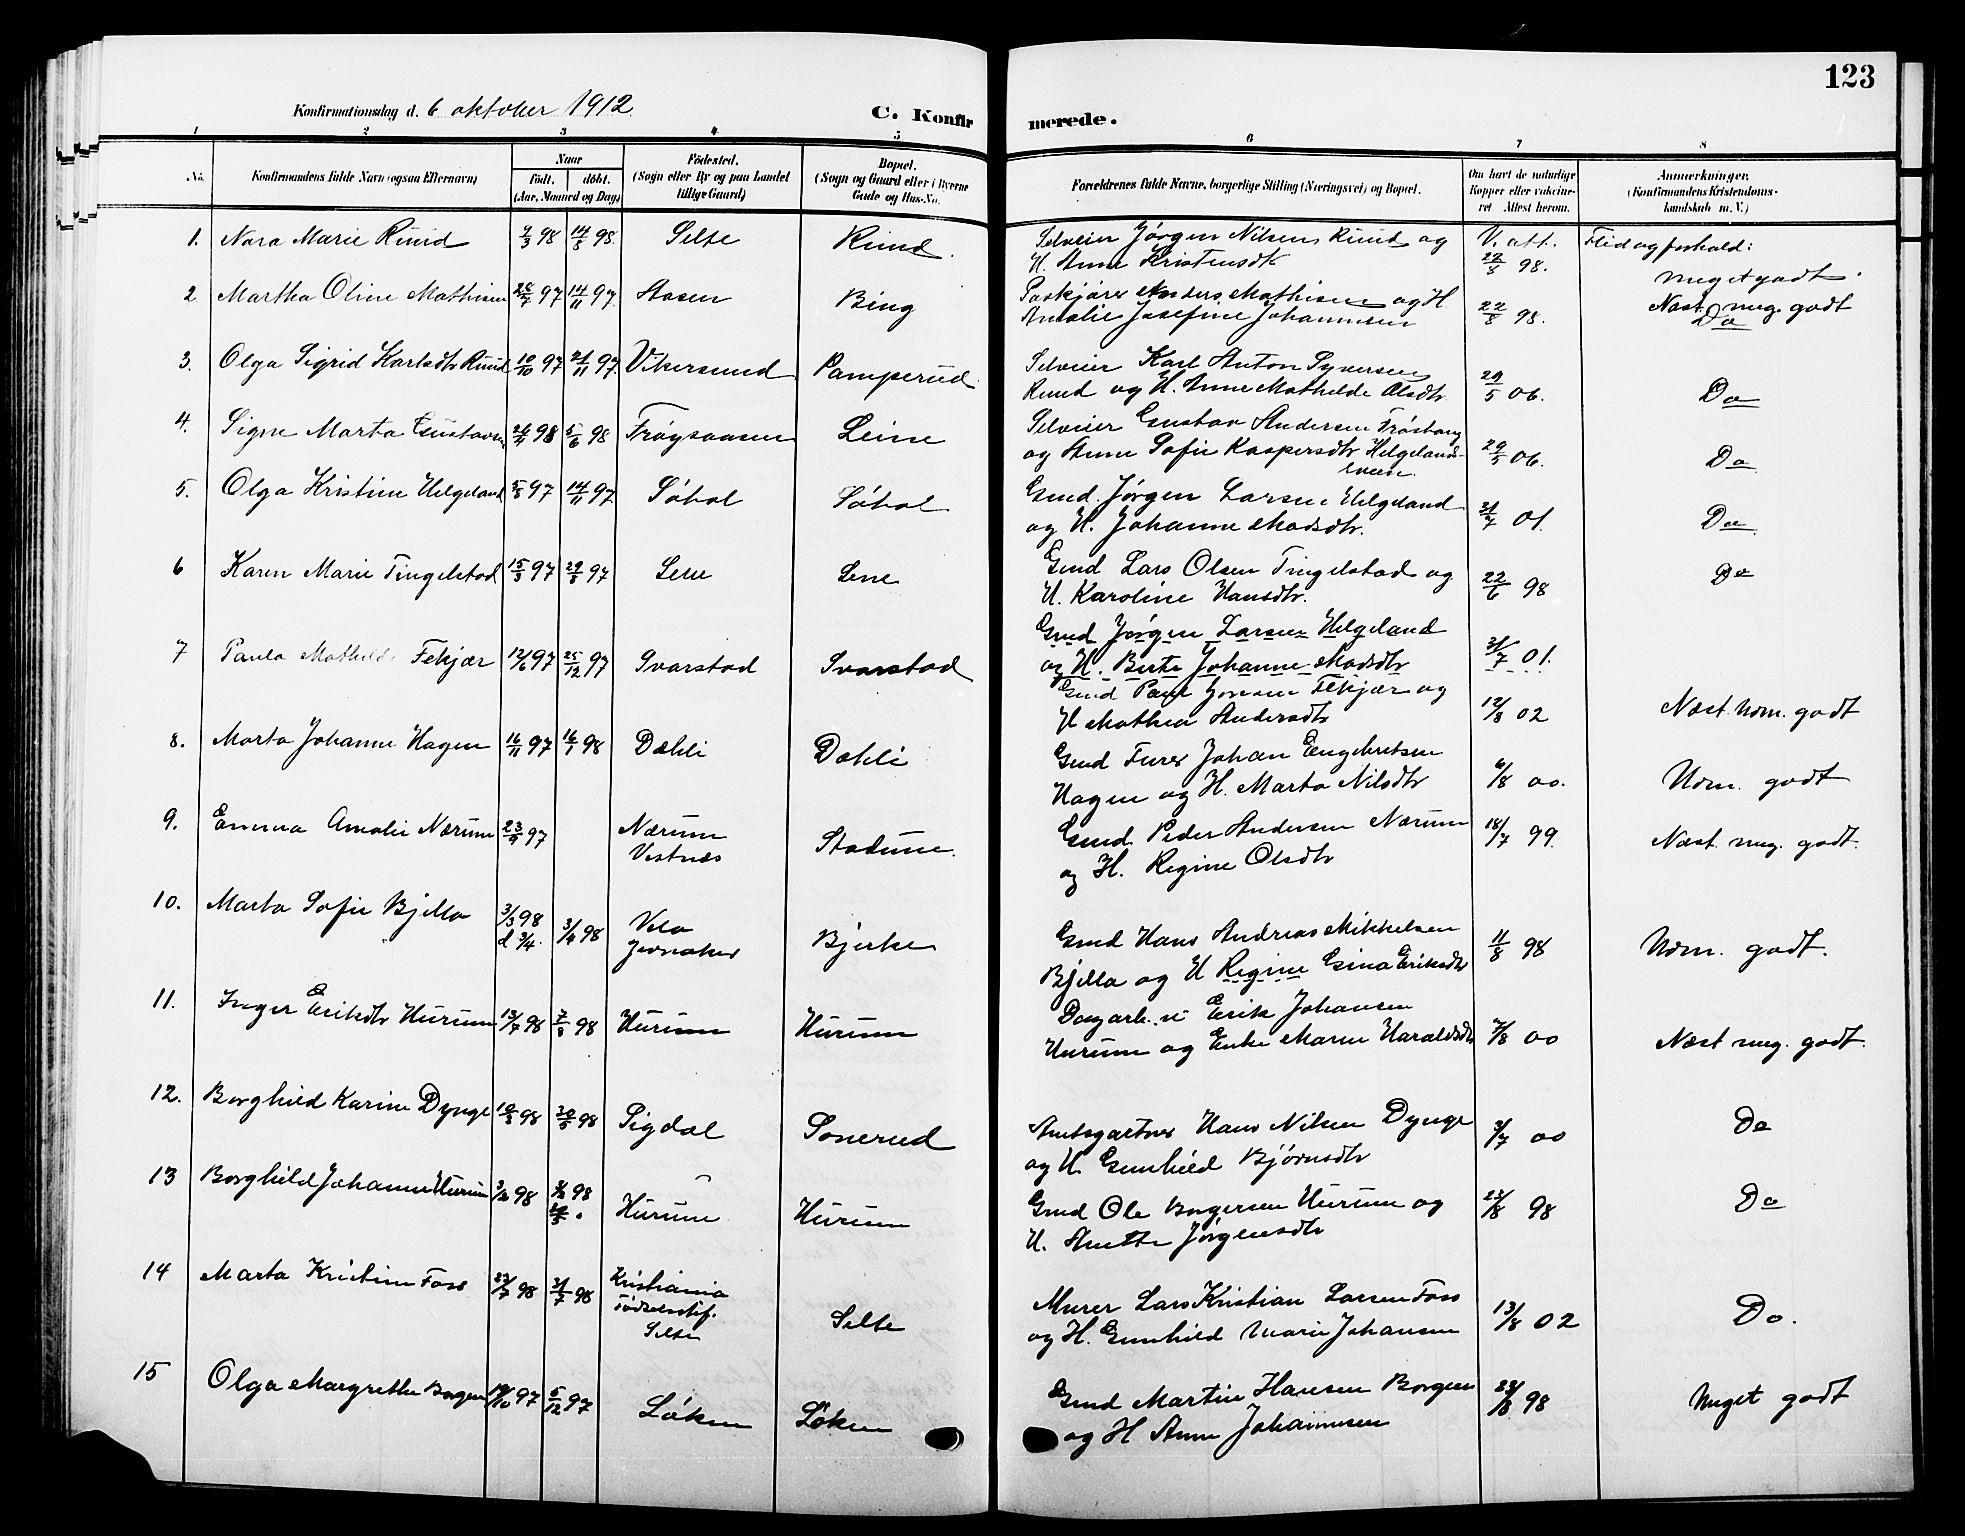 123
Konfirmationsdag d. 6 oktober 1912.
C. Konfirmerede.
1 2 3 4 5 6 7 8
No.
Konfirmandens fulde Navn (ogsaa Efternavn)
Naar
født, døbt.
(Aar, Maaned og Dag)
Födested.
(Sogn eller By og paa Landet
tillige Gaard)
Bopæl.
(Sogn og Gaard eller i Byerne
Gade og Hus-No.
Forældrenes fulde Navne, borgerlige Stilling (Næringsvei) og Bopæl.
Om havt de naturlige
Kopper eller vaccine-
ret Attest herom.
Anmerkninger,
(Konfirmandens Kristendoms-
kundskab m. V.)
1. Nora Marie Ruud 98 98. Selte Ruud.
Selveier Jørgen Nilsen Ruud og
H. Anne Kristensdtr
V. att.
22/8 98.
Flid og forhold:
meget godt
2. Martha Oline Mathisen 97 14/11 97. Aasen Bing
Paskjører Anders Mathisen og H.
Amalie Josefine Johannesen
22/8 98.
Næst. meg. godt
Do
3. Olga Sigrid Karlsdtr Ruud 10/10 97 21/11 97. Vikersund Pamperud.
Selveier Karl Anton Syversen
Ruud og H. Anne Mathilde Olsdtr
29/5 06.
Do
4. Signe Marta Gustavsen 98 5/6 98 Frøysaasen Leine
Selveier Gustav Andersen Frøshaug
og Anne Sofie Kaspersdtr Helgelands-
eveie.
29/5 06.
Do
5. Olga Kristine Helgeland 97 14/11 97 Søhol Søhol
Gmd. Jørgen Larsen Helgeland
og H. Johanne Madsdtr.
31/7 01.
Do
6 Karen Marie Tingelstad 15/3 97 29/8 97 Lene Lene
Gmd Lars Olsen Tingelstad og
H. Karoline Hansdtr.
22/6 98
Do
Gmd Jørgen Larsen Helgeland
og H. Berte Johanne Madsdtr
31/7 01.
7 Paula Mathilde Fekjær 12/6 97 25/12 97 Svarstad Svarstad
Gmd Paul Jonsen Fekjær og
H Mathea Andersdtr
12/8 02
Næst. udm. godt
8. Marta Johanne Hagen 16/11 97 16/1 98 Dæhli Dæhli
Gmd Furer Johan Engebretsen
Hagen og H. Marta Nilsdtr
6/8 00.
Udm. godt
9. Emma Amalie Nærum 23/9 97 Nærum
Vestnes
Stadum.
Gmd. Peder Andersen Nærum
og H. Regine Olsdtr
18/7 99.
Næst. meg. godt.
10. Marta Sofie Bjella 3/3 98
d 3/4.
3/4 98
Velo
Jevnaker
Bjerke
Gmd Hans Andreas Mikkelsen
Bjella og H Regine Gina Eriksdtr
11/8 98
Udm. godt.
11. Inger Eriksdtr Hurum 13/7 98 7/8 98 Hurum Hurum
Dagarb. Erik Johansen
Hurum og Enke Maren Haraldsdtr
7/8 00
Næst meg. godt.
12. Borghild Karine Dynge 10/3 98 98 Sigdal Sonerud
Amtsgartner Hans Nilsen Dynge
og H. Gunhild Bjørnsdtr
3/7 00
Do
13 Borghild Johanne Hurum 98 98 Hurum Hurum
Gmd Ole Borgersen Hurum og
H. Anette Jørgensdtr
23/8 98
Do
14 Marta Kristine Foss 98 31/7 98 Kristiania
Fødselsstif.
Selte
Selte
Murer Lars Kristian Larsen Foss
og H. Gunhild Marie Johansen
13/8 02
Do.
15 Olga Margrethe Borgen 97 5/12 97 Løken Løken
Gmd Martin Hansen Borgen
og H Anne Johannesen
23/8 98
Meget godt